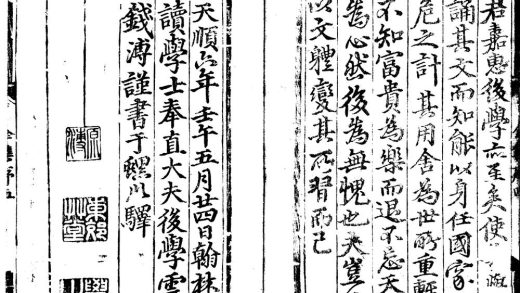 君嘉惠後學亦至矣使
誦其文而知能以身任國家
危之計其用舍為世所重輕
不知富貴為樂而退不忘天
為心然後為無愧也夫豈
以文體變其所習而已
天順六年壬午五月廿四日翰林
讀學士奉直大夫後學雲
錢溥謹書于驛
原溥
東
草堂